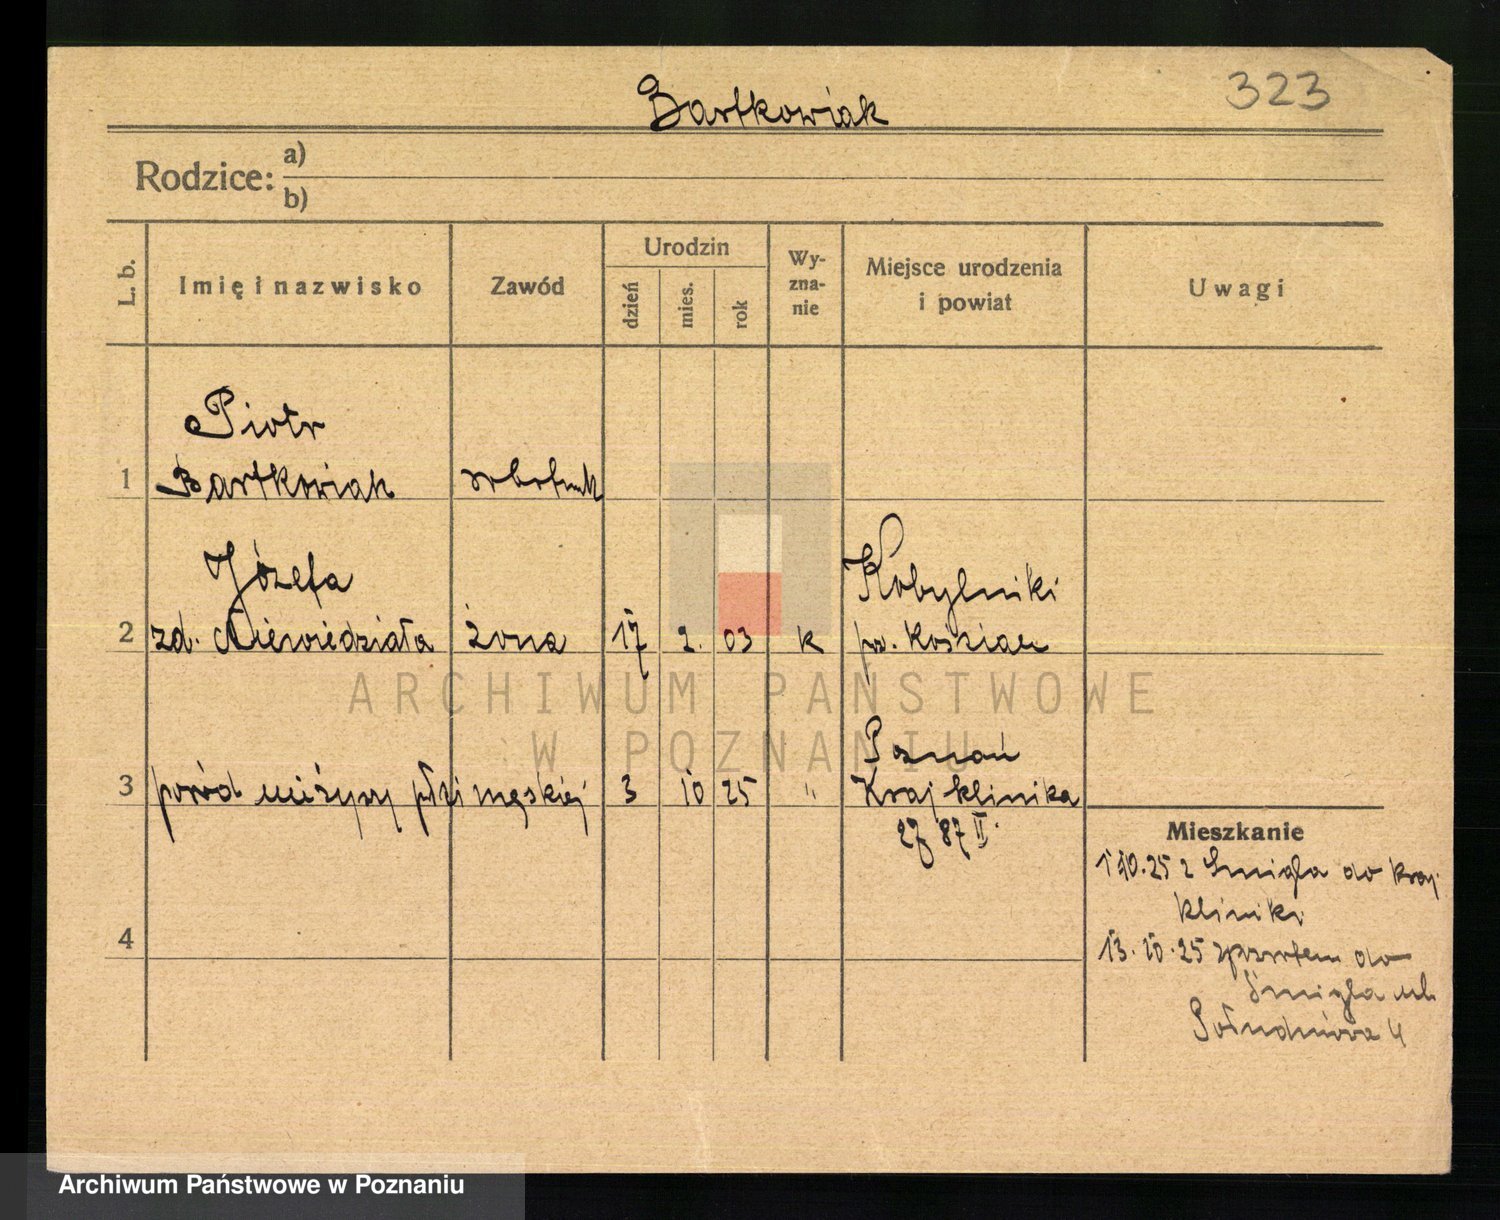 Bartkowiak
323
Rodzice: a)
b)
L. b.
Imię i nazwisko
Zawód
Urodzin
dzień
mies.
rok
Wy-
zna-
nie
Miejsce urodzenia
i powiat
Uwagi
Piotr
1 Bartkowiak
Józefa
Kobylniki
2 zd. Niewiedziała żona 17 2. 03 k pow. Kościan
ARCHIWUM PAŃSTWOWE
W POZNANIU
Poznań
3 poród nieżywy płci męskiej 3 10 25 " Kraj klinika
87 II.
Mieszkanie
1 10. 25 z Śmigla do kraj
kliniki
4
13. 10. 25 zpowrotem do
Śmigla ul.
Południowa 4
Archiwum Państwowe w Poznaniu